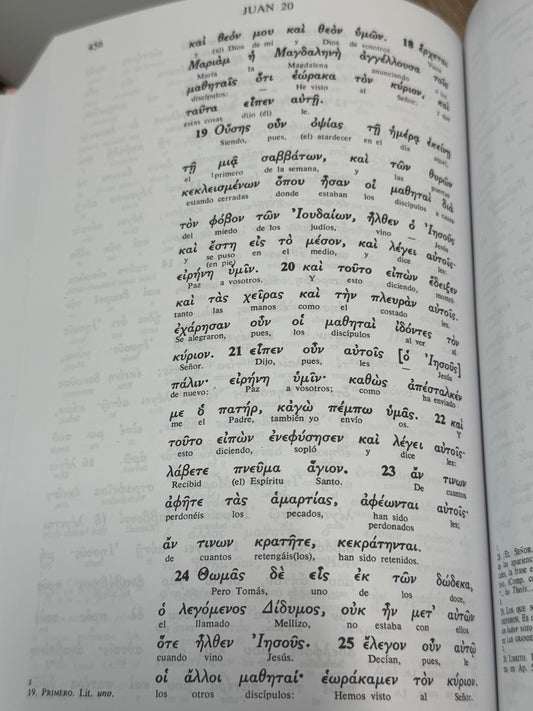 456
JUAN 20
καὶ θεόν μου καὶ θεὸν ὑμῶν. 18 ἔρχεται
y (al) Dios de mí y Dios de vosotros. Viene
Μαριὰμ ἡ Μαγδαληνὴ ἀγγέλλουσα τοῖς
María la Magdalena anunciando a los
μαθηταῖς ὅτι ἑώρακα τὸν κύριον, καὶ
discípulos: — He visto al Señor; y que
ταῦτα εἶπεν αὐτῇ.
estas cosas dijo (él) le.
19 Οὔσης οὖν ὀψίας τῇ ἡμέρᾳ ἐκείνῃ
Siendo, pues, (el) atardecer en el día aquel,
τῇ μιᾷ σαββάτων, καὶ τῶν θυρῶν
el ¹primero de la semana, y las puertas
κεκλεισμένων ὅπου ἦσαν οἱ μαθηταὶ διὰ
estando cerradas donde estaban los discípulos a causa
τὸν φόβον τῶν Ἰουδαίων, ἦλθεν ὁ Ἰησοῦς
del miedo de los judíos, vino — Jesús
καὶ ἔστη εἰς τὸ μέσον, καὶ λέγει αὐτοῖς·
y se puso en el medio, y dice les:
(en pie)
εἰρήνη ὑμῖν. 20 καὶ τοῦτο εἰπὼν ἔδειξεν
Paz a vosotros. Y esto diciendo, mostró
καὶ τὰς χεῖρας καὶ τὴν πλευρὰν αὐτοῖς.
tanto las manos como el costado les.
ἐχάρησαν οὖν οἱ μαθηταὶ ἰδόντες τὸν
Se alegraron, pues, los discípulos al ver al
κύριον. 21 εἶπεν οὖν αὐτοῖς [ὁ Ἰησοῦς]
Señor. Dijo, pues, les — Jesús
πάλιν· εἰρήνη ὑμῖν· καθὼς ἀπέσταλκέν
de nuevo: Paz a vosotros; como ha enviado
με ὁ πατήρ, κἀγὼ πέμπω ὑμᾶς. 22 καὶ
me el Padre, también yo envío os. Y
τοῦτο εἰπὼν ἐνεφύσησεν καὶ λέγει αὐτοῖς·
esto diciendo, sopló y dice les:
λάβετε πνεῦμα ἅγιον. 23 ἄν τινων
Recibid (el) Espíritu Santo. De cuantos
ἀφῆτε τὰς ἁμαρτίας, ἀφέωνται αὐτοῖς·
perdonéis los pecados, han sido les;
perdonados
ἄν τινων κρατῆτε, κεκράτηνται.
de cuantos retengáis(los), han sido retenidos.
24 Θωμᾶς δὲ εἷς ἐκ τῶν δώδεκα,
Pero Tomás, uno de los doce,
ὁ λεγόμενος Δίδυμος, οὐκ ἦν μετ' αὐτῶν
el llamado Mellizo, no estaba con ellos
ὅτε ἦλθεν Ἰησοῦς. 25 ἔλεγον οὖν αὐτῷ
cuando vino Jesús. Decían, pues, le
οἱ ἄλλοι μαθηταί· ἑωράκαμεν τὸν κύριον.
los otros discípulos: Hemos visto al Señor.
19. PRIMERO. Lit. uno.